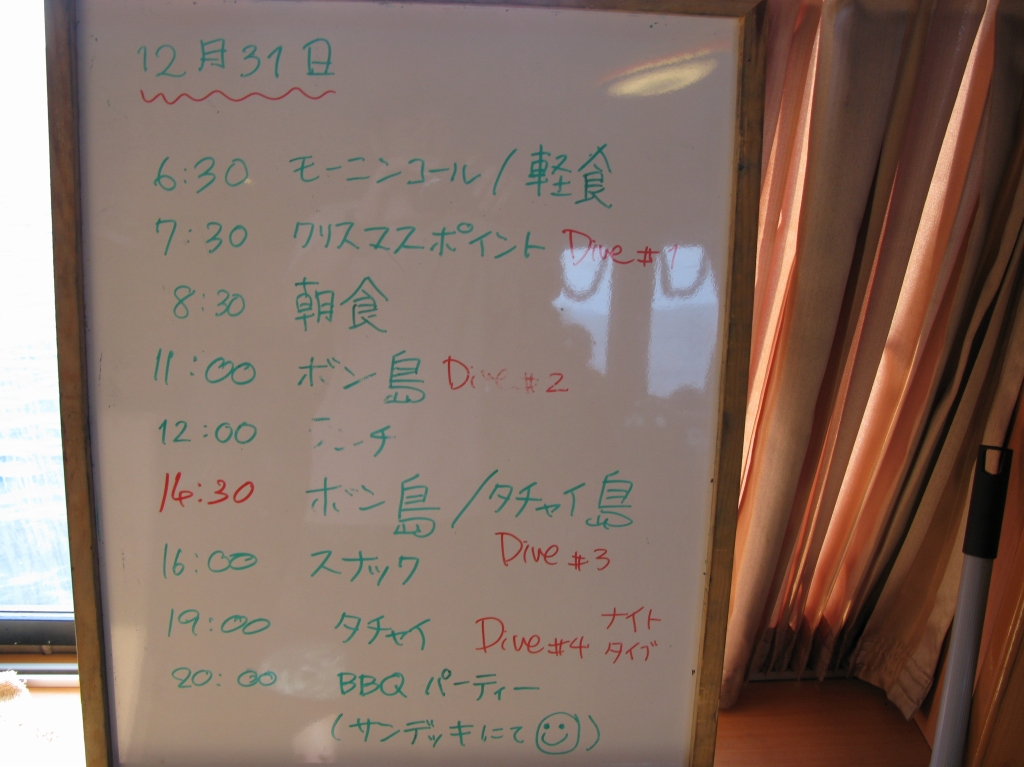 12月31日
6:30 モーニンコール / 軽食
7:30 クリスマスポイント Dive #1
8:30 朝食
11:00 ボン島 Dive #2
12:00 ランチ
14:30 ボン島 / タチャイ島
Dive #3
16:00 スナック
19:00 タチャイ Dive #4 ナイト
タイブ
20:00 BBQ パーティー
(サンデッキにて☺)